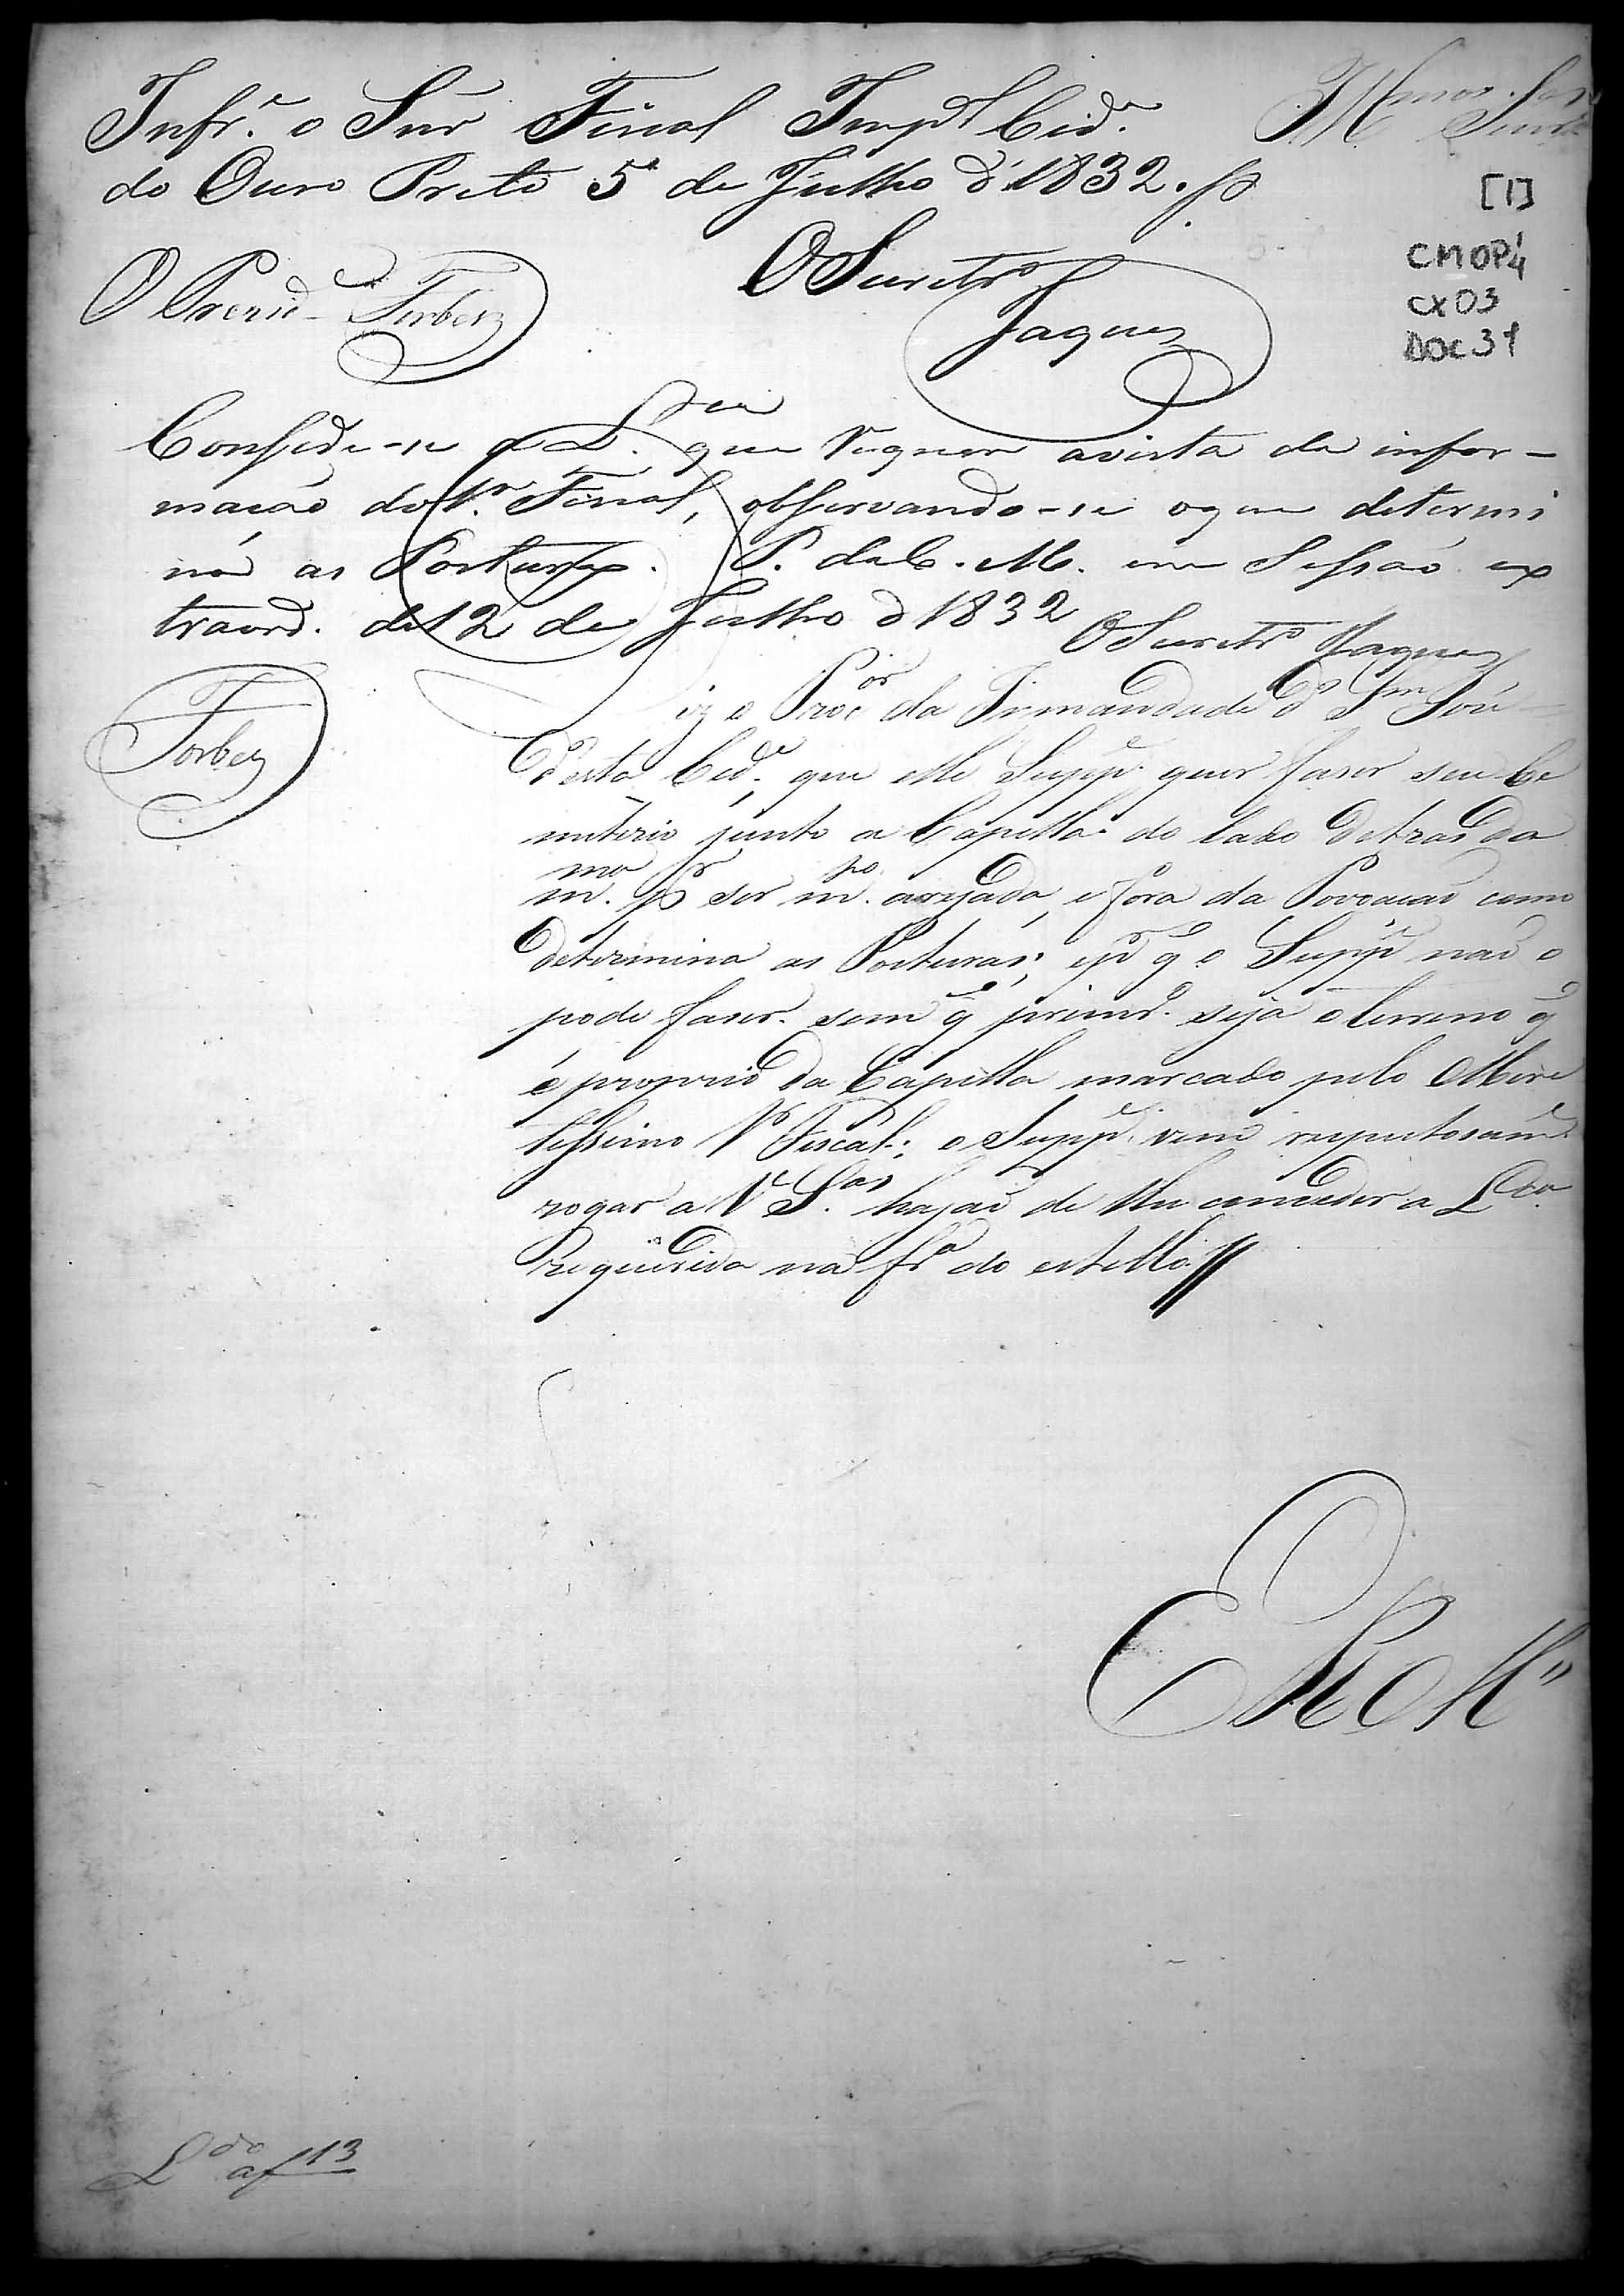 Infr.e o Snr Fiscal Imp.l Cid.e
do Ouro Preto 5 de Julho d'1832.
Illmos. Snres
[1]
CMOP4
CX03
DOC31
O Prezid.e Forbes
O Secretr.o
Jaques
Consede-se a L.ca que requer avista da infor-
mação do Sr. Fiscal, observando-se oque determi
não as Posturas. P. da C. M. em Sessão ex
traord. de 12 de Julho d 1832 O Secretr.o Jaques
Forbes
Diz o Proc.or da Irmandade d S.m José
desta Cid.e que elle Supp.e quer faser seu Ce
miterio junto a Capella do lado detras da
m.ma pr ser m.to arejada, e fora da Povoação como
determina as Posturas; e pr q o Supp.e não o
pode faser sem q prim.o seja o terreno q
é proprio da Capella marcado pelo Mere
tissimo Sr. Fiscal; o Supp.e vem respeitosam.e
rogar a V S.as hajão de lhe conceder a L.ca
requerida na fr.a do estillo //
E R M.ce
L.do a f 13